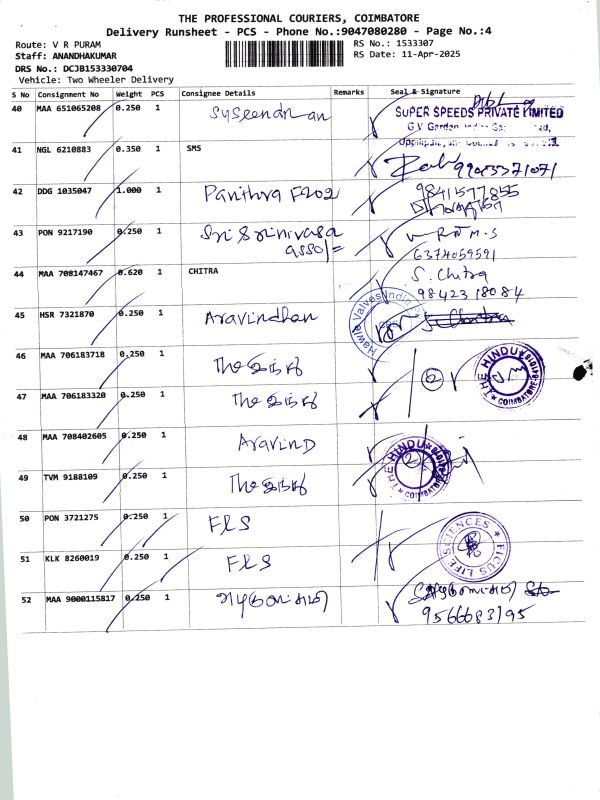 THE PROFESSIONAL COURIERS, COIMBATORE
Delivery Runsheet - PCS - Phone No.:9047080280 - Page No.:4
Route: V R PURAM RS No.: 1533307
Staff: ANANDHAKUMAR RS Date: 11-Apr-2025
DRS No.: DCJB153330704
Vehicle: Two Wheeler Delivery
S No Consignment No Weight PCS Consignee Details Remarks Seal & Signature
40 MAA 651065208 0.250 1
SUPER SPEEDS PRIVATE LIMITED
G.V Garden
41 NGL 6210883 0.350 1 SMS
42 DDG 1035047 1.000 1 Panthra F202 9841577855
43 PON 9217190 0.250 1 Sri Srinivasa
asso/=
6374059591
44 MAA 708147467 0.620 1 CHITRA S. Chitra
9842318084
45 HSR 7321870 0.250 1 Aravindhan Hawle Valves India
46 MAA 706183718 0.250 1 The இந்து THE HINDU COIMBATORE
47 MAA 706183320 0.250 1 The இந்து
48 MAA 708402605 0.250 1 Aravind THE HINDU COIMBATORE
49 TVM 9188109 0.250 1 The இந்து
50 PON 3721275 0.250 1 FLS FICUS LIFE SCIENCES
51 KLK 8260019 0.250 1 FLS
52 MAA 9000115817 0.250 1
9566683195